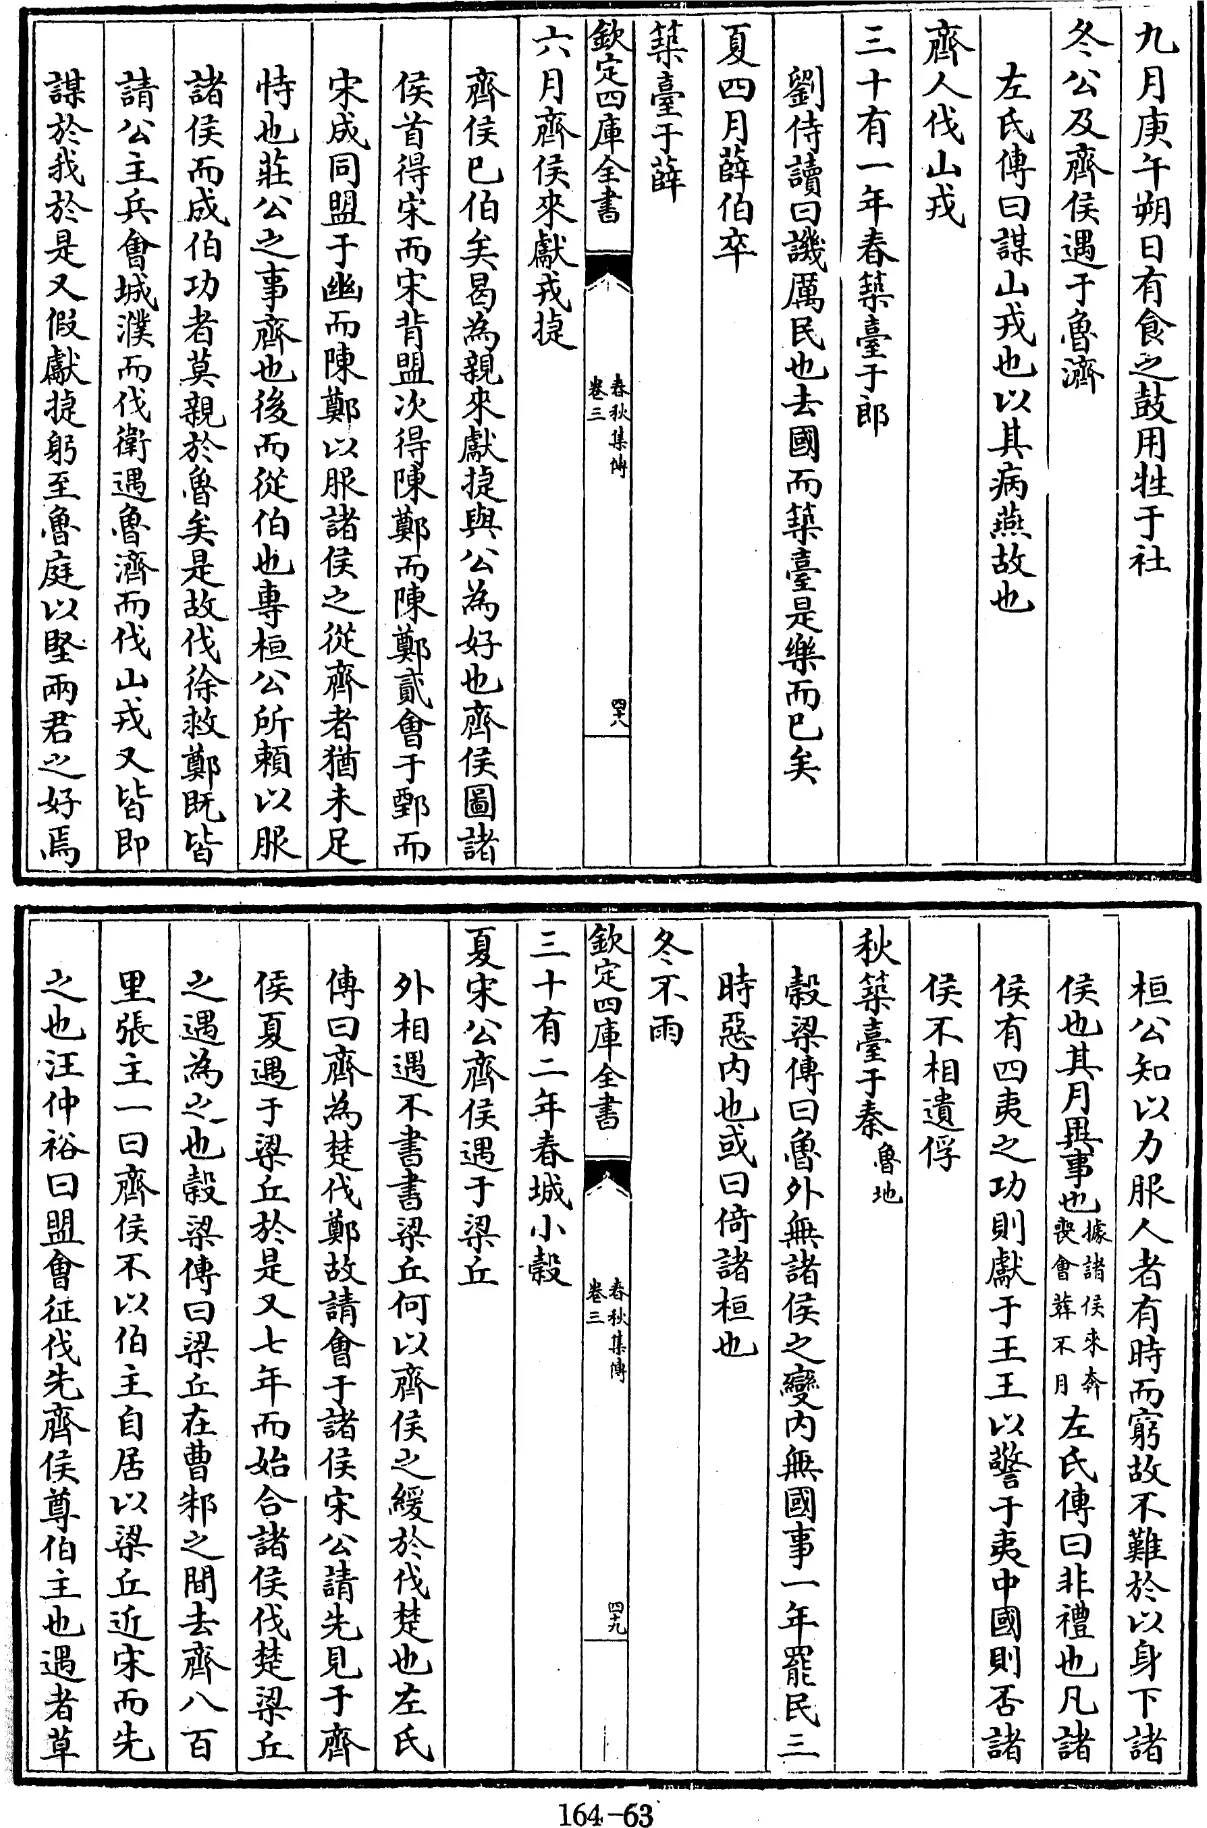 九月庚午朔日有食之鼓用牲于社
冬公及齊侯遇于魯濟
左氏傳曰謀山戎也以其病燕故也
齊人伐山戎
三十有一年春築臺于郎
劉侍讀曰譏厲民也去國而築臺是樂而已矣
夏四月薛伯卒
築臺于薛
欽定四庫全書
春秋集傳
卷三
四十八
六月齊侯來獻戎捷
齊侯已伯矣曷為親來獻捷與公為好也齊侯圖諸
侯首得宋而宋背盟次得陳鄭而陳鄭貳會于鄄而
宋成同盟于幽而陳鄭以服諸侯之從齊者猶未足
恃也莊公之事齊也後而從伯也專桓公所賴以服
諸侯而成伯功者莫親於魯矣是故伐徐救鄭既皆
請公主兵會城濮而伐衛遇魯濟而伐山戎又皆即
謀於我於是又假獻捷躬至魯庭以堅兩君之好焉
桓公知以力服人者有時而窮故不難於以身下諸
侯也其月異事也據諸侯來奔喪會葬不月左氏傳曰非禮也凡諸
侯有四夷之功則獻于王王以警于夷中國則否諸
侯不相遺俘
秋築臺于秦魯地
穀梁傳曰魯外無諸侯之變內無國事一年罷民三
時惡內也或曰倚諸桓也
冬不雨
欽定四庫全書
春秋集傳
卷三
四十九
三十有二年春城小穀
夏宋公齊侯遇于梁丘
外相遇不書書梁丘何以齊侯之緩於伐楚也左氏
傳曰齊為楚伐鄭故請會于諸侯宋公請先見于齊
侯夏遇于梁丘於是又七年而始合諸侯伐楚梁丘
之遇為之也穀梁傳曰梁丘在曹邾之間去齊八百
里張主一曰齊侯不以伯主自居以梁丘近宋而先
之也汪仲裕曰盟會征伐先齊侯尊伯主也遇者草
164-63